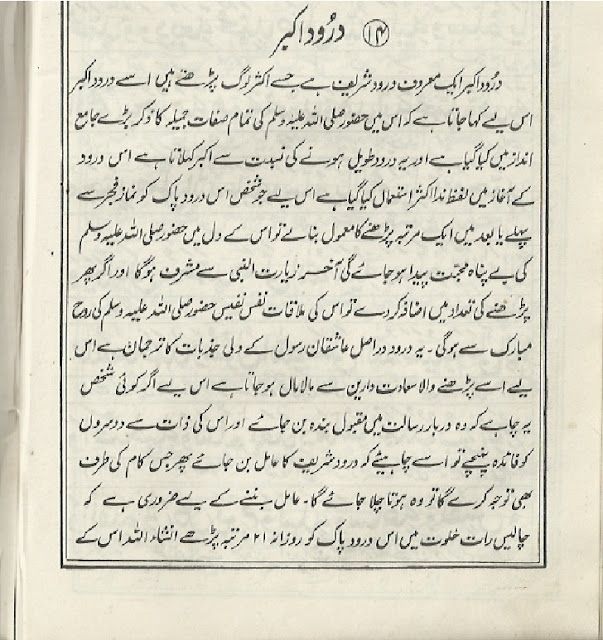 ۱۴ درُود اکبر
درُود اکبر ایک معروف درود شریف ہے جسے اکثر لوگ پڑھتے ہیں اسے درود اکبر
اس لیے کہا جاتا ہے کہ اس میں حضور صلی اللہ علیہ وسلم کی تمام صفات جمیلہ کا ذکر بڑے جامع
انداز میں کیا گیا ہے اور یہ درود طویل ہونے کی نسبت سے اکبر کہلاتا ہے اس درود
کے آغاز میں لفظ ندا اکثر استعمال کیا گیا ہے اس لیے جو شخص اس درود پاک کو نماز فجر سے
پہلے یا بعد میں ایک مرتبہ پڑھنے کا معمول بنائے تو اس کے دل میں حضور صلی اللہ علیہ وسلم
کی بے پناہ محبّت پیدا ہو جائے گی آخر زیارت النبی سے مشرف ہوگا اور اگر پھر
پڑھنے کی تعداد میں اضافہ کر دے تو اس کی ملاقات نفس نفیس حضور صلی اللہ علیہ وسلم کی روح
مبارک سے ہوگی ۔ یہ درود دراصل عاشقان رسول کے دلی جذبات کا ترجمان ہے اس
لیے اسے پڑھنے والا سعادت دارین سے مالا مال ہو جاتا ہے اس لیے اگر کوئی شخص
یہ چاہے کہ وہ دربار رسالت میں مقبول بندہ بن جائے اور اس کی ذات سے دوسروں
کو فائدہ پہنچے تو اسے چاہیئے کو درود شریف کا عامل بن جائے پھر جس کام کی طرف
بھی توجہ کرے گا تو وہ ہوتا چلا جائے گا ۔ عامل بننے کے لیے ضروری ہے کہ
چالیس رات خلوت میں اس درود پاک کو روزانہ ۲۱ مرتبہ پڑھے انشاء اللہ اس کے